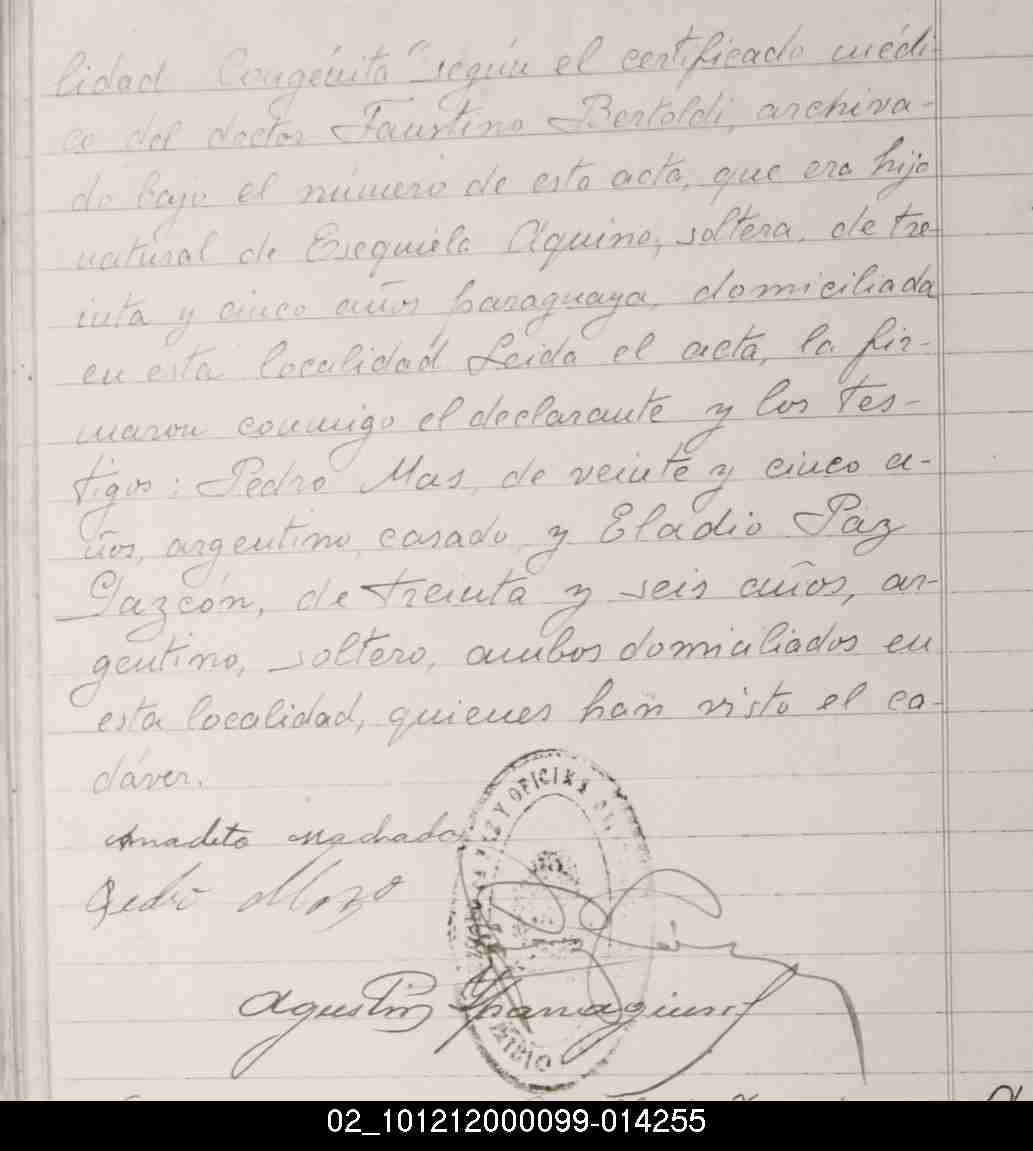 lidad Congénita" según el certificado médi-
co del doctor Faustino Bertoldi, archiva-
do bajo el número de esta acta, que era hijo
natural de Esequiela Aquino, soltera, de tre-
inta y cinco años paraguaya, domiciliada
en esta localidad Leida el acta, la fir-
maron conmigo el declarante y los tes-
tigos: Pedro Mas, de veinte y cinco a-
ños, argentino, casado, y Eladio Paz
Gazcón, de treinta y seis años, ar-
gentino, soltero, ambos domiciliados en
esta localidad, quienes han visto el ca-
dáver.
PAZ Y OFICINA DEL
Amadeto Machado
Pedro
Agustin
02_101212000099-014255